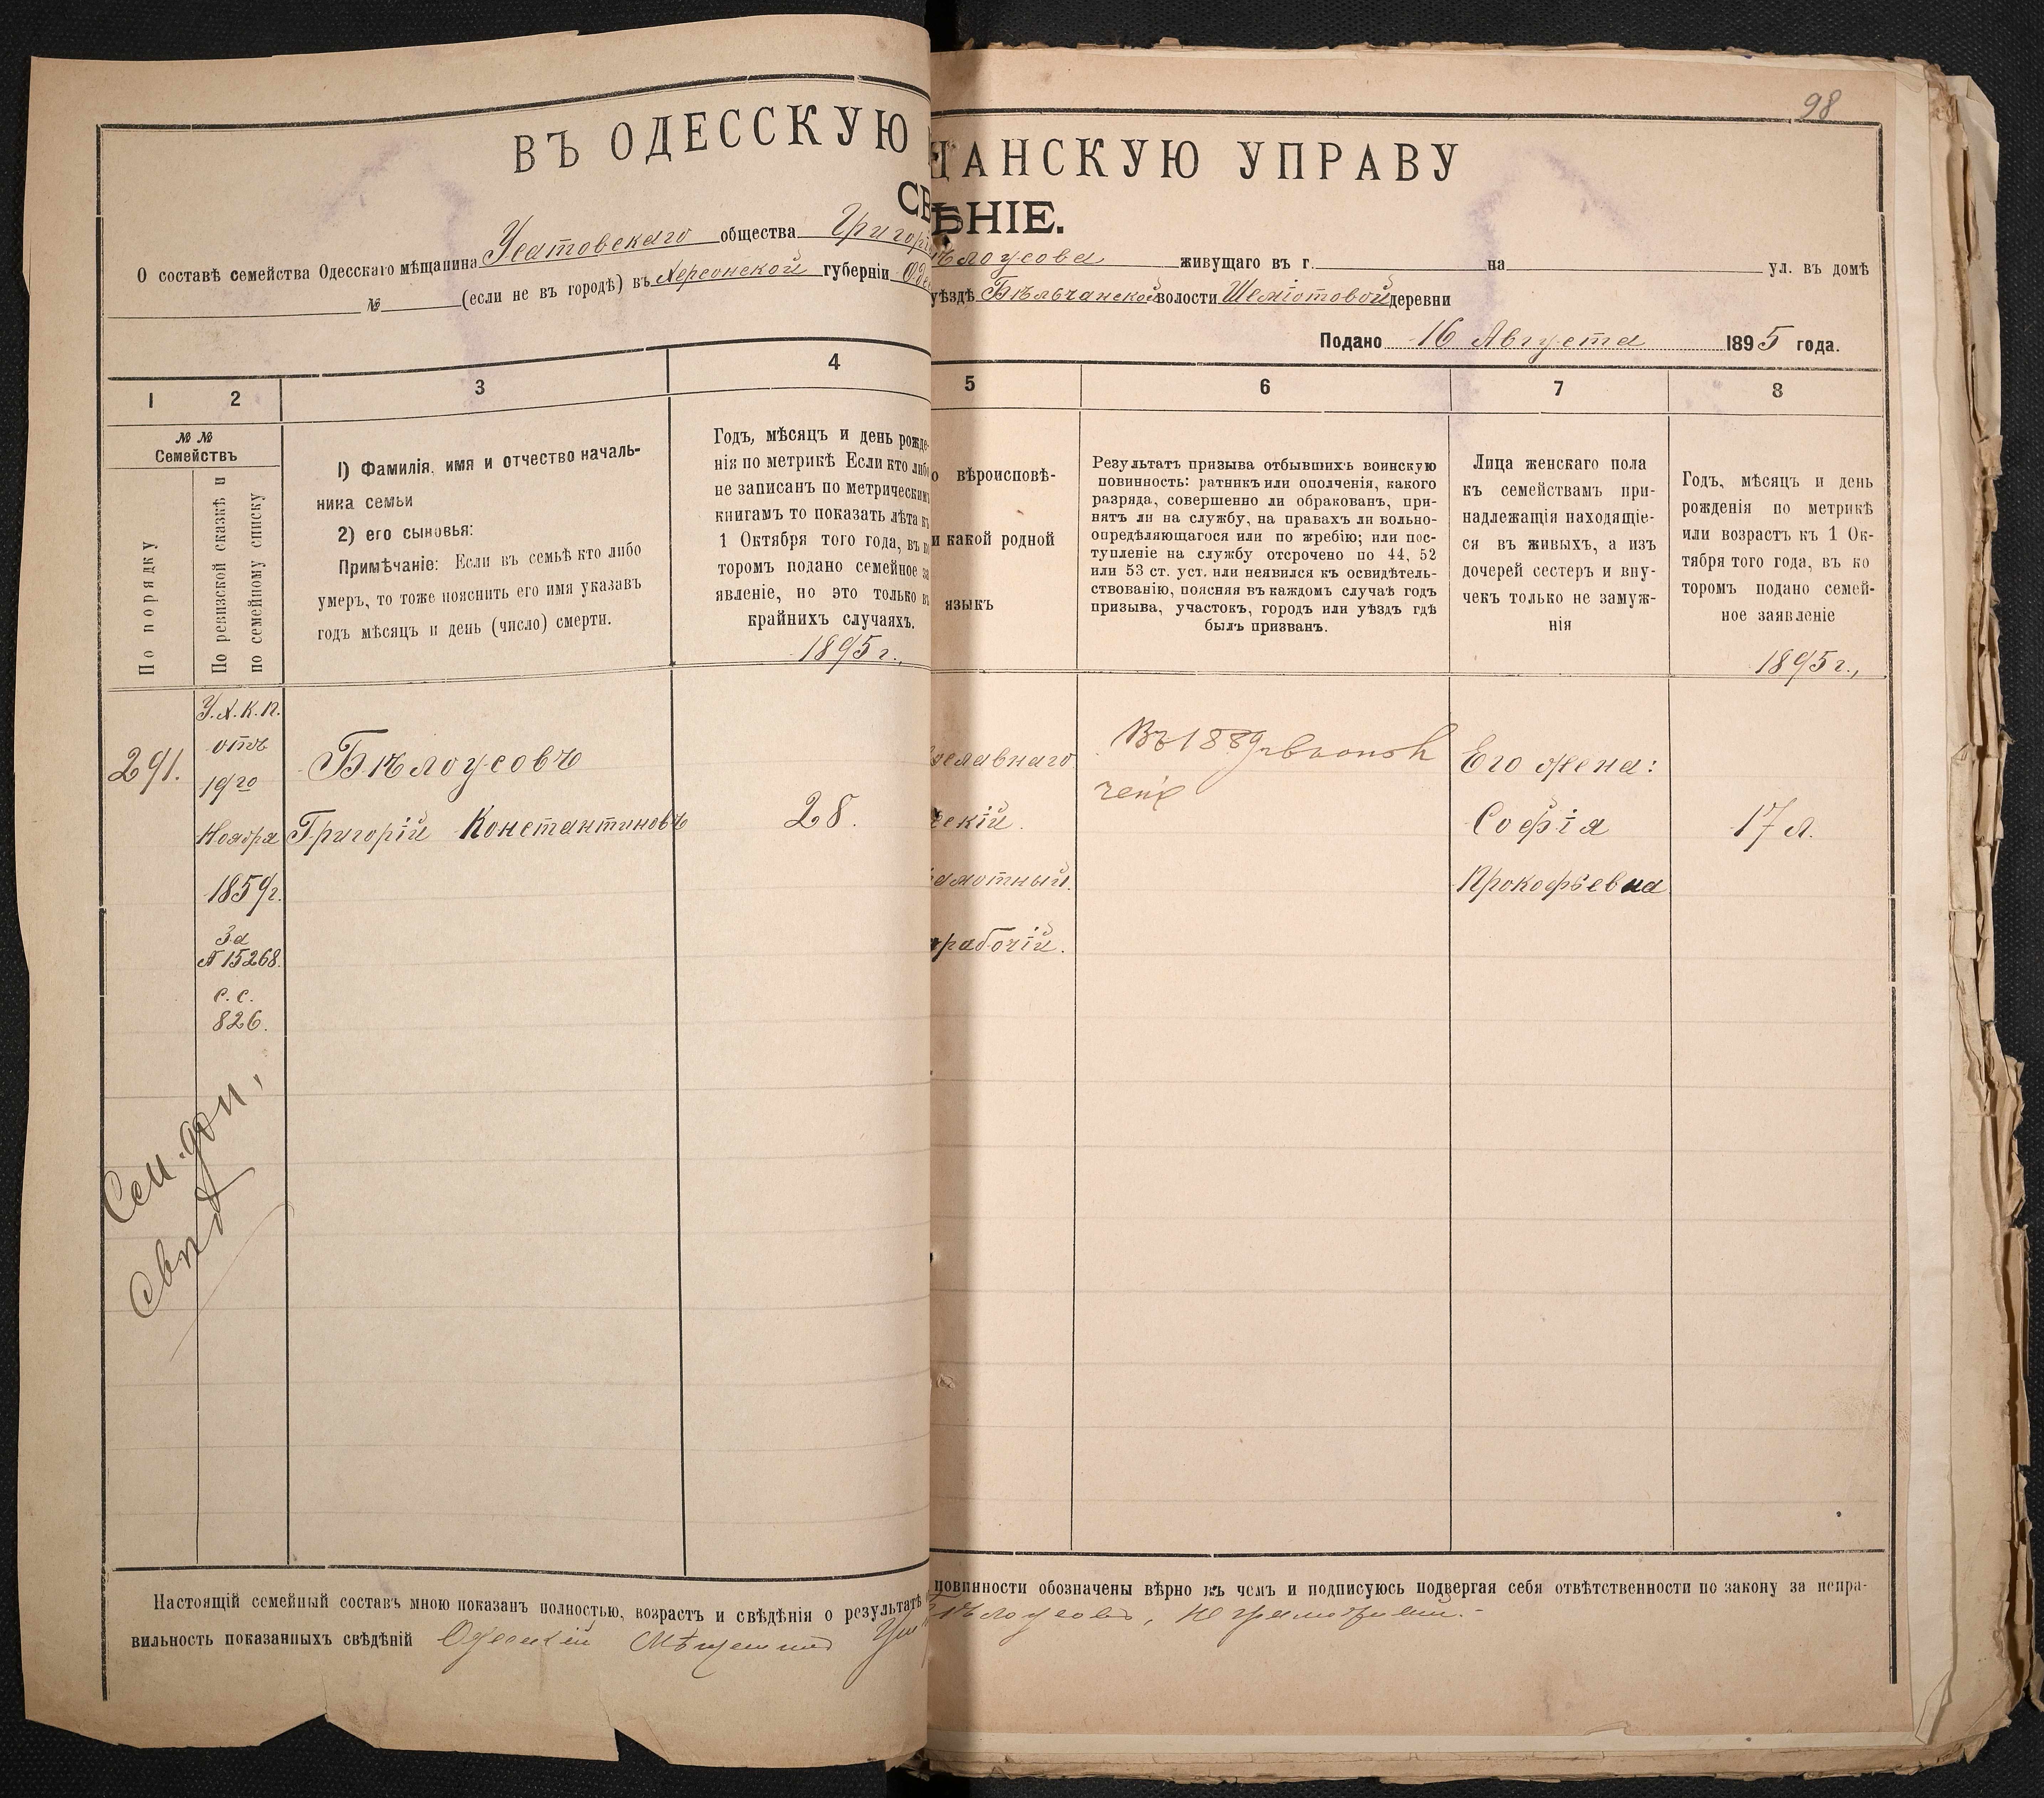 98
ВЪ ОДЕССКУЮ ЩАНСКУЮ УПРАВУ
СВ ѢНІЕ.
О составѣ семейства Одесскаго мѣщанина Усатовскаго общества Григорі ѣлоусова живущаго въ г. на ул. въ домѣ
№ (если не въ городѣ) въ Херсонской губерніи Оде уѣздѣ Бѣльчанской волости Шеміотовой деревни
Подано 16 Августа 1895 года.
1 2 3 4 5 6 7 8
№ №
Семействъ
По порядку
По ревизской сказкѣ и
по семейному списку
1) Фамилія, имя и отчество началь-
ника семьи
2) его сыновья:
Примѣчаніе: Если въ семьѣ кто либо
умеръ, то тоже пояснить его имя указавъ
годъ мѣсяцъ и день (число) смерти.
Годъ, мѣсяцъ и день рожде-
нія по метрикѣ Если кто либо
не записанъ по метрическимъ
книгамъ то показать лѣта къ
1 Октября того года, въ ко
торомъ подано семейное за
явленіе, но это только въ
крайнихъ случаяхъ.
1895 г.,
о вѣроисповѣ-
и какой родной
языкъ
Результатъ призыва отбывшихъ воинскую
повинность: ратникъ или ополченія, какого
разряда, совершенно ли обракованъ, при-
нятъ ли на службу, на правахъ ли вольно-
опредѣляющагося или по жребію; или пос-
тупленіе на службу отсрочено по 44, 52
или 53 ст. уст. или неявился къ освидѣтель-
ствованію, поясняя въ каждомъ случаѣ годъ
призыва, участокъ, городъ или уѣздъ гдѣ
былъ призванъ.
Лица женскаго пола
къ семействамъ при-
надлежащія находящіе-
ся въ живыхъ, а изъ
дочерей сестеръ и вну-
чекъ только не замуж-
нія
Годъ, мѣсяцъ и день
рожденія по метрикѣ
или возрастъ къ 1 Ок-
тября того года, въ ко
торомъ подано семей-
ное заявленіе
1895 г.,
291.
У.Х.К.П.
отъ
19го
Ноября
1859г.
За
№ 15268.
с.с.
826.
Бѣлоусовъ
Григорій Константиновъ
28.
ославнаго
скій.
амотный.
рабочій.
Въ 1889
Его жена:
Софія
Прокофьевна
17 л.
Сем. доп.
свид
Настоящій семейный составъ мною показанъ полностью, возрастъ и свѣдѣнія о результатѣ повинности обозначены вѣрно въ чемъ и подписуюсь подвергая себя отвѣтственности по закону за непра-
вильность показанныхъ свѣдѣній Одесскій Мѣщанинъ ѣлоусовъ, неграмотный.-